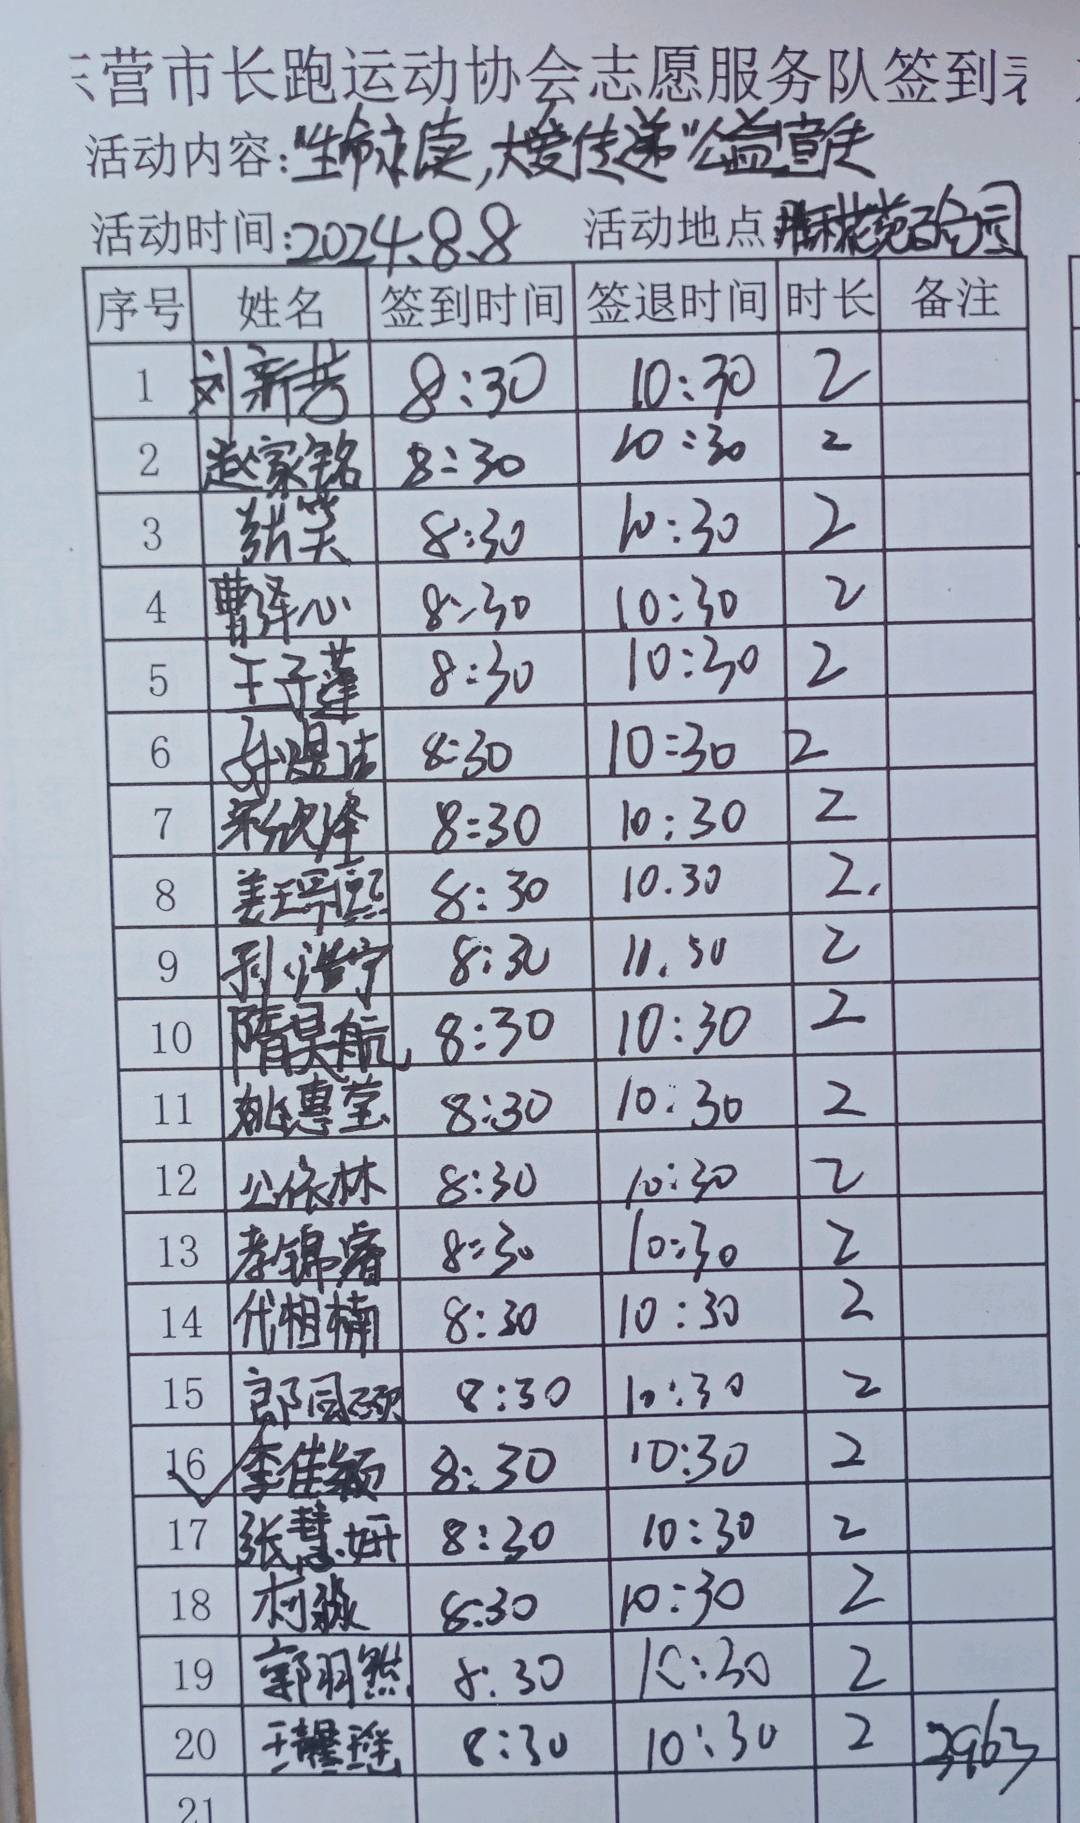 营市长跑运动协会志愿服务队签到
活动内容:"生命永续,大爱传递"公益宣传
活动时间:2024.8.8 活动地点
序号 姓名 签到时间 签退时间 时长 备注
1 刘新芳 8:30 10:30 2
2 赵家铭 8:30 10:30 2
3 张笑 8:30 10:30 2
4 曹泽心 8:30 10:30 2
5 王子莲 8:30 10:30 2
6 煜洁 8:30 10:30 2
7 宋欣泽 8:30 10:30 2
8 姜 熙 8:30 10.30 2.
9 孙浩宁 8:30 2
10 隋昊航 8:30 10:30 2
11 姚惠莹 8:30 10:30 2
12 公依林 8:30 10:30 2
13 李锦睿 8:30 10:30 2
14 代相楠 8:30 10:30 2
15 郎 8:30 10:30 2
16 李佳颖 8:30 10:30 2
17 张慧妍 8:30 10:30 2
18 8:30 10:30 2
19 郭羽然 8:30 10:30 2
20 王 8:30 10:30 2 2963
21